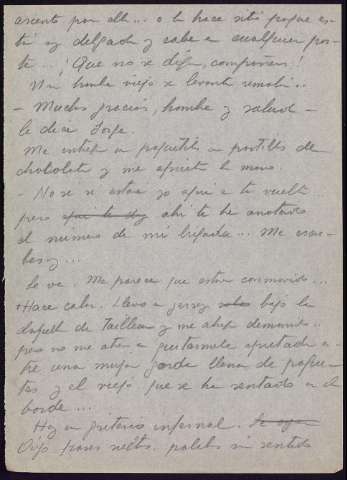 asiento por allí... o le hace sitio porque es-
tá vd delgada y cabe en cualquier par-
te... ¡Que no se diga, compañeros!
Un hombre viejo se levanta
- Muchas gracias, hombre y salud -
le dice Jorge.
Me entrega un paquetito con pastillas de
chocolate y me aprieta la mano.
- No se si estaré yo aquí a tu vuelta
pero aquí te doy ahí te he anotado
el número de mi brigada... Me escri-
bes y...
Se va. Me parece que está conmovido...
Hace calor. Llevo un jersey bajo la
del tailleur y me ahogo
pero no me atrevo a quitármelo apretada en-
tre una mujer gorda llena de paque-
tes y el viejo que se ha sentado en el
borde...
Hay un griterío infernal.
Oigo frases sueltas, palabras sin sentido